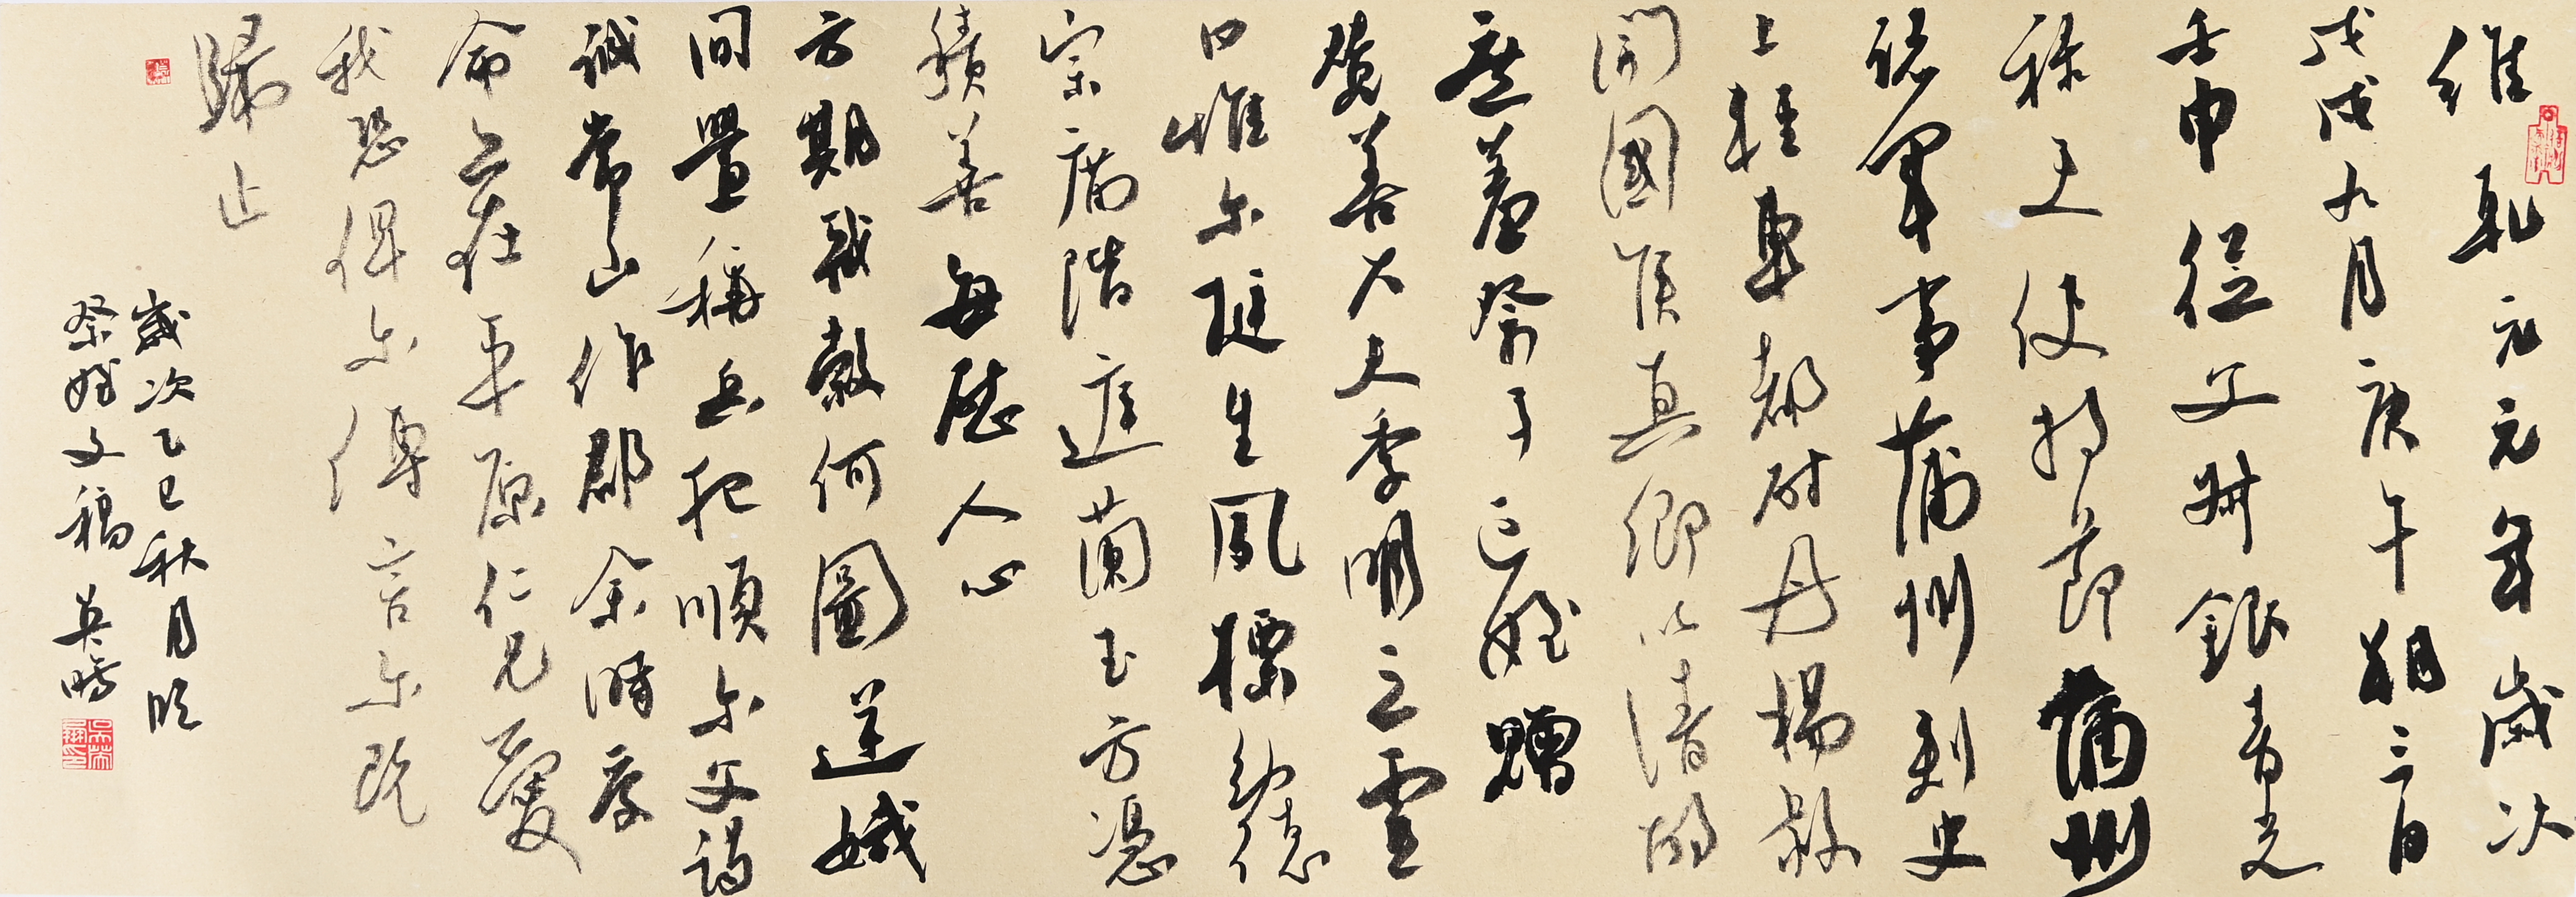 維乾元元年歲次
戊戌九月庚午朔三日
壬申從父姉銀青光
祿夫使持節蒲州
諸軍事蒲州刺史
上輕車都尉丹楊縣
開國侯真卿以清酌
庶羞祭于亡姪贈
贊善大夫季明之靈
曰惟尔挺生夙標幼德
宗廟階庭蘭玉方憑
積善每慰人心
方期戩穀何圖逆賊
間釁稱兵犯順尔父竭
誠常山作郡余時受
命亦在平原仁兄愛
我恐俾尔傳言尔既
歸止
歲次乙巳秋月臨
祭姪文稿